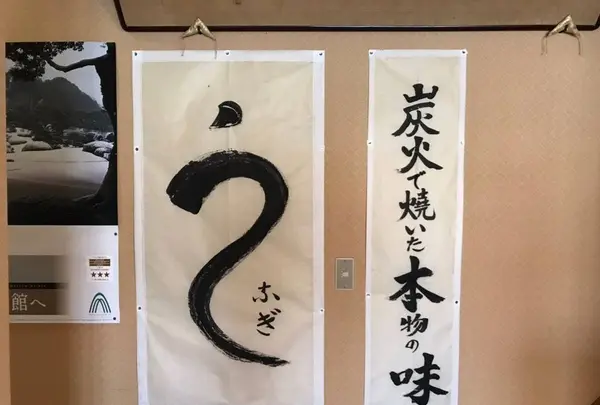 炭火で焼いた本物の味
うなぎ
館へ